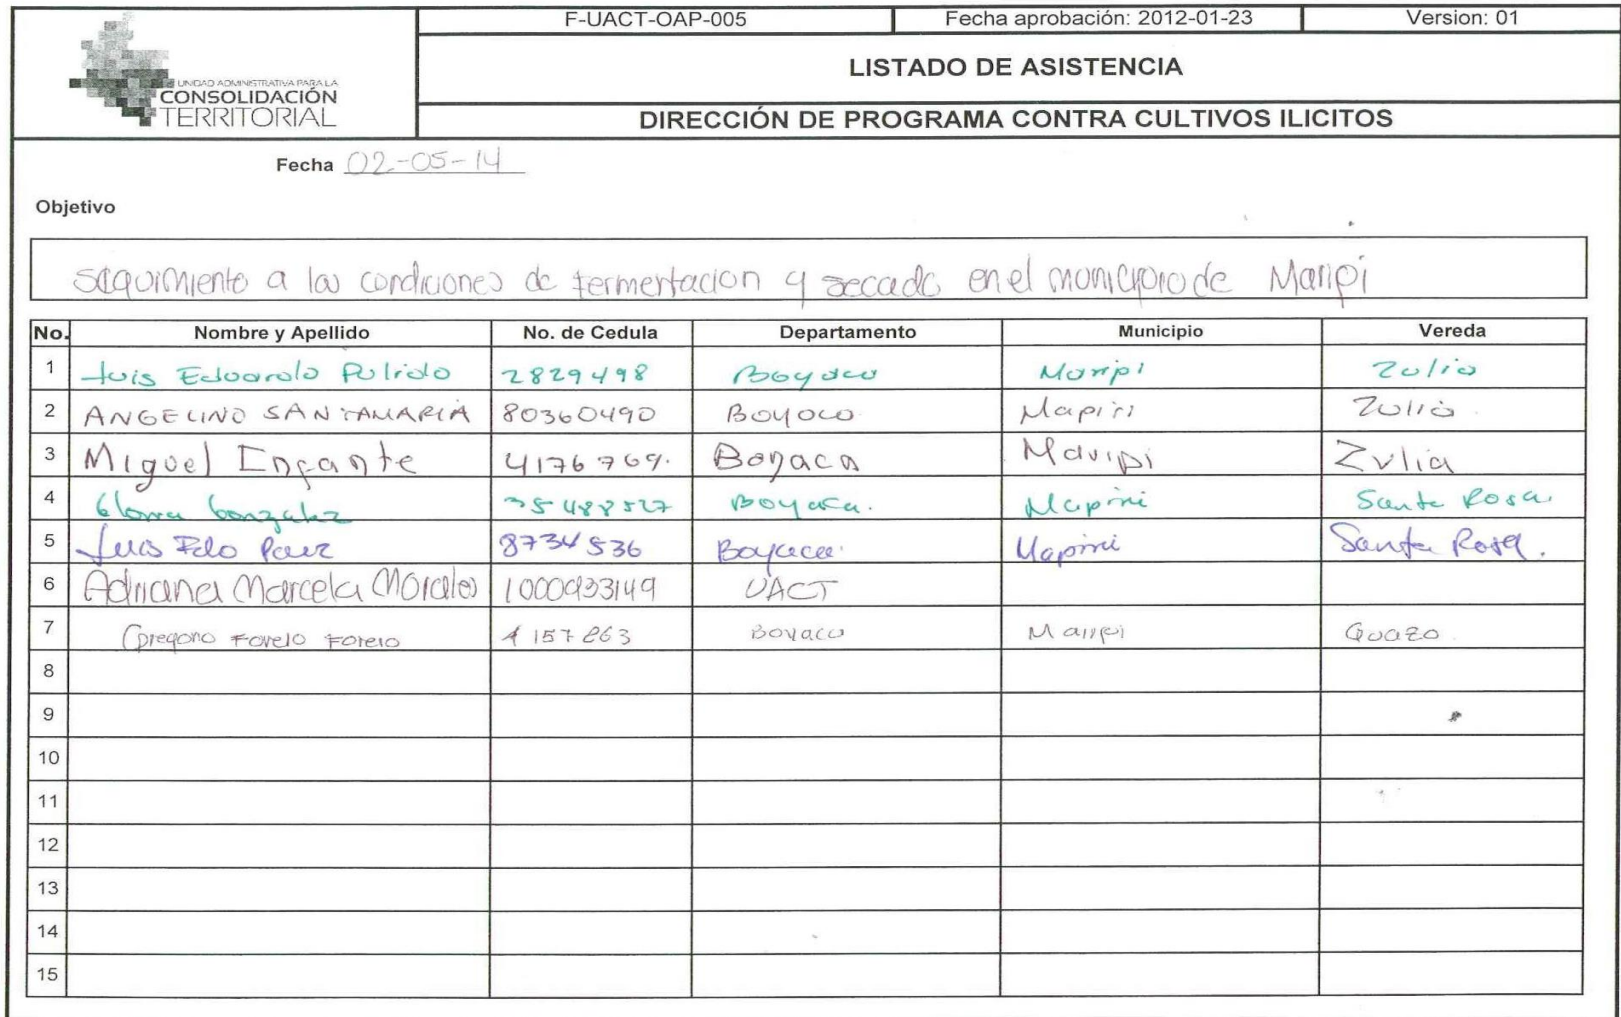 F-UACT-OAP-005 Fecha aprobación: 2012-01-23 Version: 01
UNIDAD ADMINISTRATIVA PARA LA
CONSOLIDACIÓN
TERRITORIAL
LISTADO DE ASISTENCIA
DIRECCIÓN DE PROGRAMA CONTRA CULTIVOS ILICITOS
Fecha 02-05-14
Objetivo
seguimiento a las condiciones de fermentacion y secado en el municipio de Maripi
No. Nombre y Apellido No. de Cedula Departamento Municipio Vereda
1 Luis Eduardo Pulido 2829498 Boyaca Maripi Zulia
2 ANGELINO SANTAMARIA 80360490 Boyoco Mapiri Zulia
3 Miguel Infante 4176769. Boyaca Maripi Zulia
4 Gloria Gonzalez 35488527 Boyaca. Mapiri Santa Rosa.
5 Luis Edo Paez 8734536 Boyaca Mapiri Santa Rosa.
6 Adriana Marcela Morales 1000933149 UACT
7 Gregorio Forero Forero 4157263 Boyaca Maripi Guazo
8
9
10
11
12
13
14
15